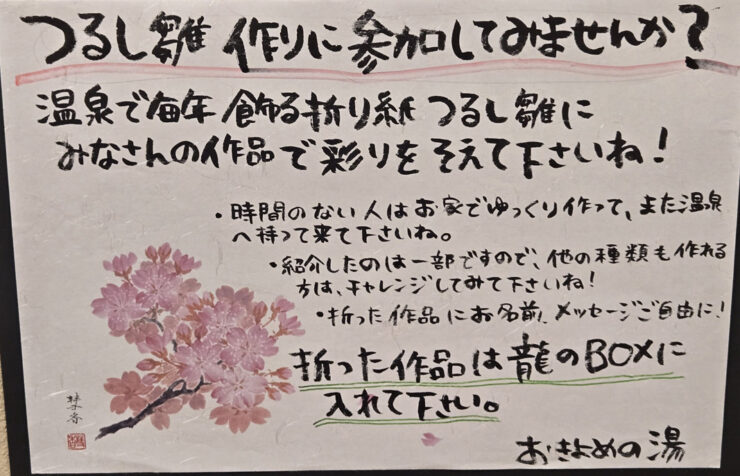 つるし雛 作りに参加してみませんか?
温泉で毎年 飾る折り紙 つるし雛に
みなさんの作品で彩りをそえて下さいね!
・時間のない人はお家でゆっくり作って、また温泉
へ持って来て下さいね。
・紹介したのは一部ですので、他の種類も作れる
方は、チャレンジしてみて下さいね!
・折った作品にお名前、メッセージご自由に!
折った作品は龍のBOXに
入れて下さい。
おきよめの湯